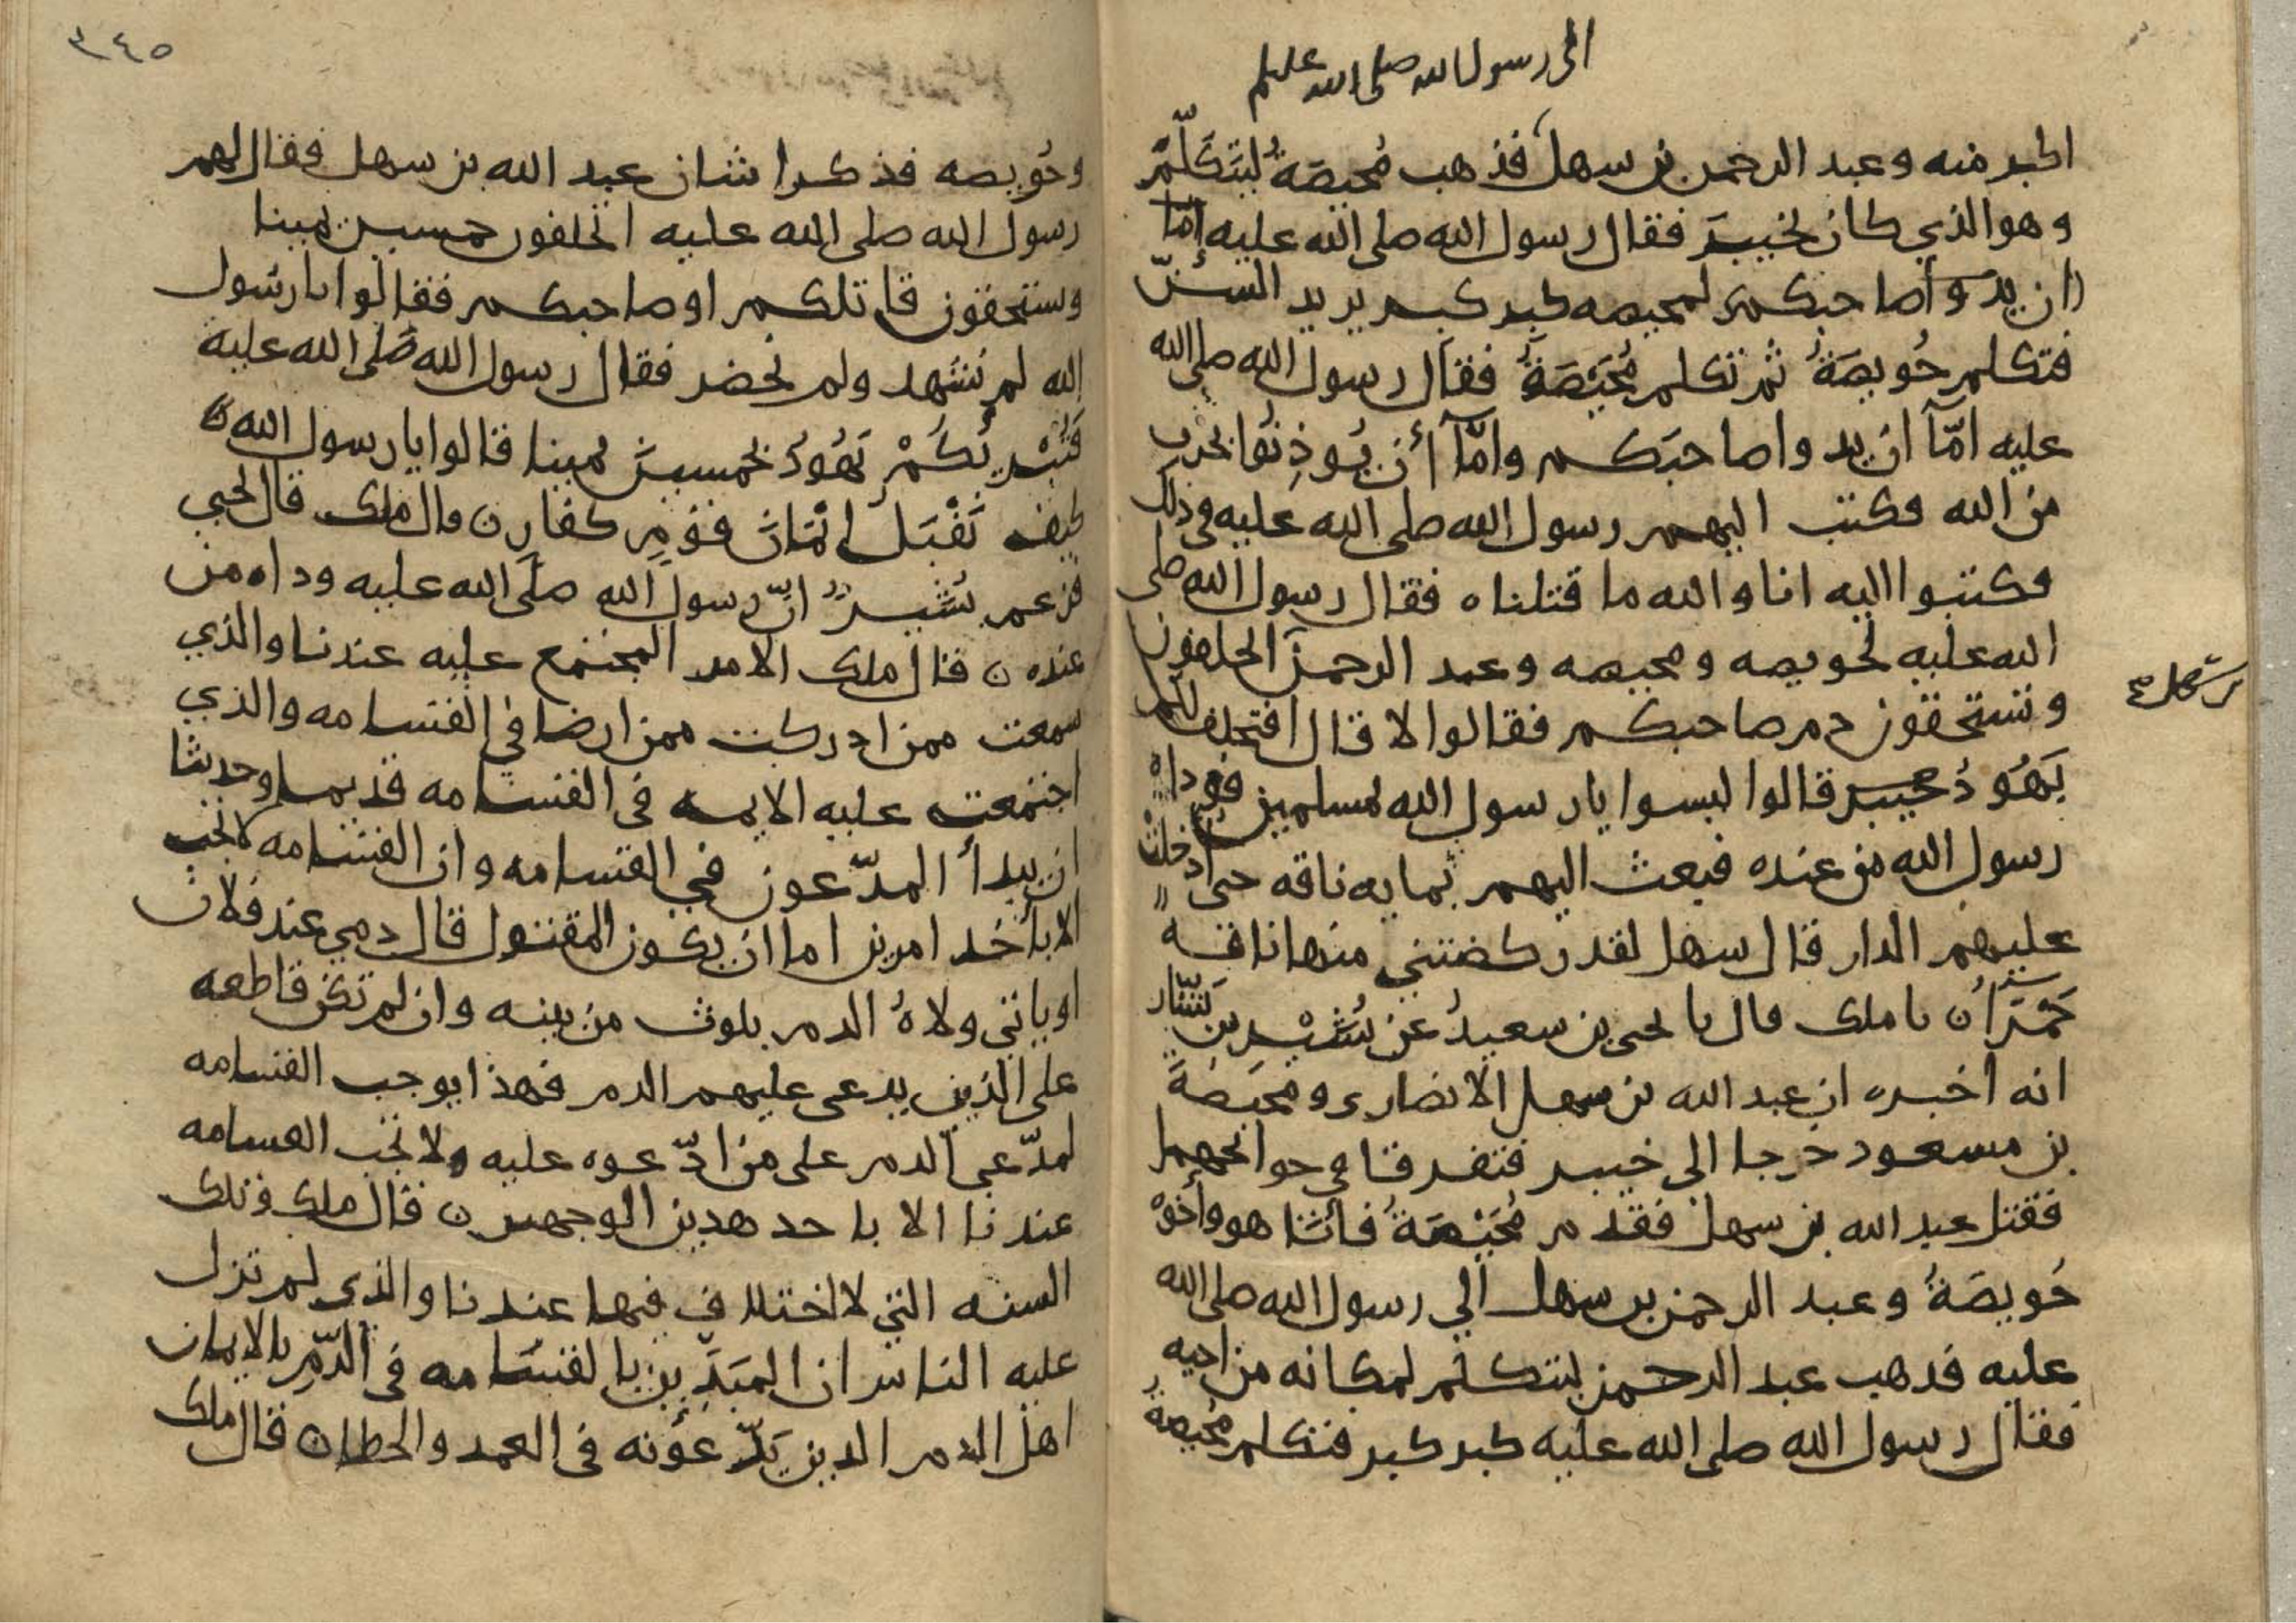 الى رسول الله صلى الله عليه وسلم
اكبر منه وعبد الرحمن بن سهل فذهب مُحيصَةُ ليَتَكَلَّمَ
وهو الذي كان بخيبرَ فقال رسول الله صلى الله عليه إمّا
ان يدوا صاحبكم لمحيصه كبر كبر يريد السنّ
فتكلم حُويصَةُ ثم تكلم مُحَيّصَةُ فقال رسول الله صلى الله
عليه امّا ان يدوا صاحبَكم وامّا أن يُوذِنُوا بحرب
من الله فكتب اليهم رسول الله صلى الله عليه في ذلك
فكتبوا اليه انا والله ما قتلناه فقال رسول الله صلى
الله عليه لحويصه ومحيصه وعبد الرحمن اتحلفون
وتستحقون دم صاحبكم فقالوا لا قال افتحلف لكم
يَهُودُ قالوا ليسوا يا رسول الله بمسلمين فوداه
رسول الله من عنده فبعث اليهم بمايه ناقه حتى أُدْخِلَتْ
عليهم الدار قال سهل لقد ركضتني منها ناقه
حَمْرَاُ ن نا ملك قال نا يحيى بن سعيدُ عن بُشَيْرِ بن يَسّار
انه اخبره ان عبد الله بن سهل الانصارى ومحيصَةَ
بن مسعود خرجا الى خيبر فتفرقا في حوائجهما
فقتل عبد الله بن سهل فقدم مُحَيْصَةُ فأتا هو وأخوهُ
حُويصَةُ وعبد الرحمن بن سهل الي رسول الله صلى الله
عليه فذهب عبد الرحمن ليتكلم لمكانه من اخيه
فقال رسول الله صلى الله عليه كبر كبر فتكلم مُحيصةُ
٣٤٥
وحُويصه فذكرا شان عبد الله بن سهل فقال لهم
رسول الله صلى الله عليه اتحلفون خمسين يمينا
وستحقون قاتلكم او صاحبكم فقالوا يا رسُول
الله لم نشهد ولم نحضر فقال رسول الله صَلى الله عليه
فَتُبْريُكُمْ يَهُودُ بخمسينَ يمينا قالوا يا رسول الله
كيف نَقْبَلُ ائْمَانَ قَوْمٍ كفارٍ ن قال ملك قال يحيى
فزعم بُشَيْرُ انّ رسول الله صلى الله عليه وداه من
عنده ن قال ملك الامر المجتمع عليه عندنا والذي
سمعت ممن ادركت ممن ارضا في القسامه والذي
اجتمعت عليه الايمه في القسامه قديما وحديثا
ان يبدأ المدّعون في القسامه وان القسامه لا تجب
الا بأحد امرين اما ان يكون المقتول قال دمي عند فلان
او ياتي ولاهُ الدم بلوث من بينه وان لم تكن قاطعه
على الذين يدعى عليهم الدم فهذا يوجب القسامه
لمدّعي الدم على من ادّعوه عليه ولا تجب القسامه
عندنا الا باحد هذين الوجهين ن قال ملك وتلك
السنه التي لا اختلاف فيها عندنا والذي لم تزل
عليه الناس ان المبَدَّيِن بالقسَامه في الدّمِ بالايمان
اهل الدم الذين يَدّعُونه في العمد والخطا ن قال ملك